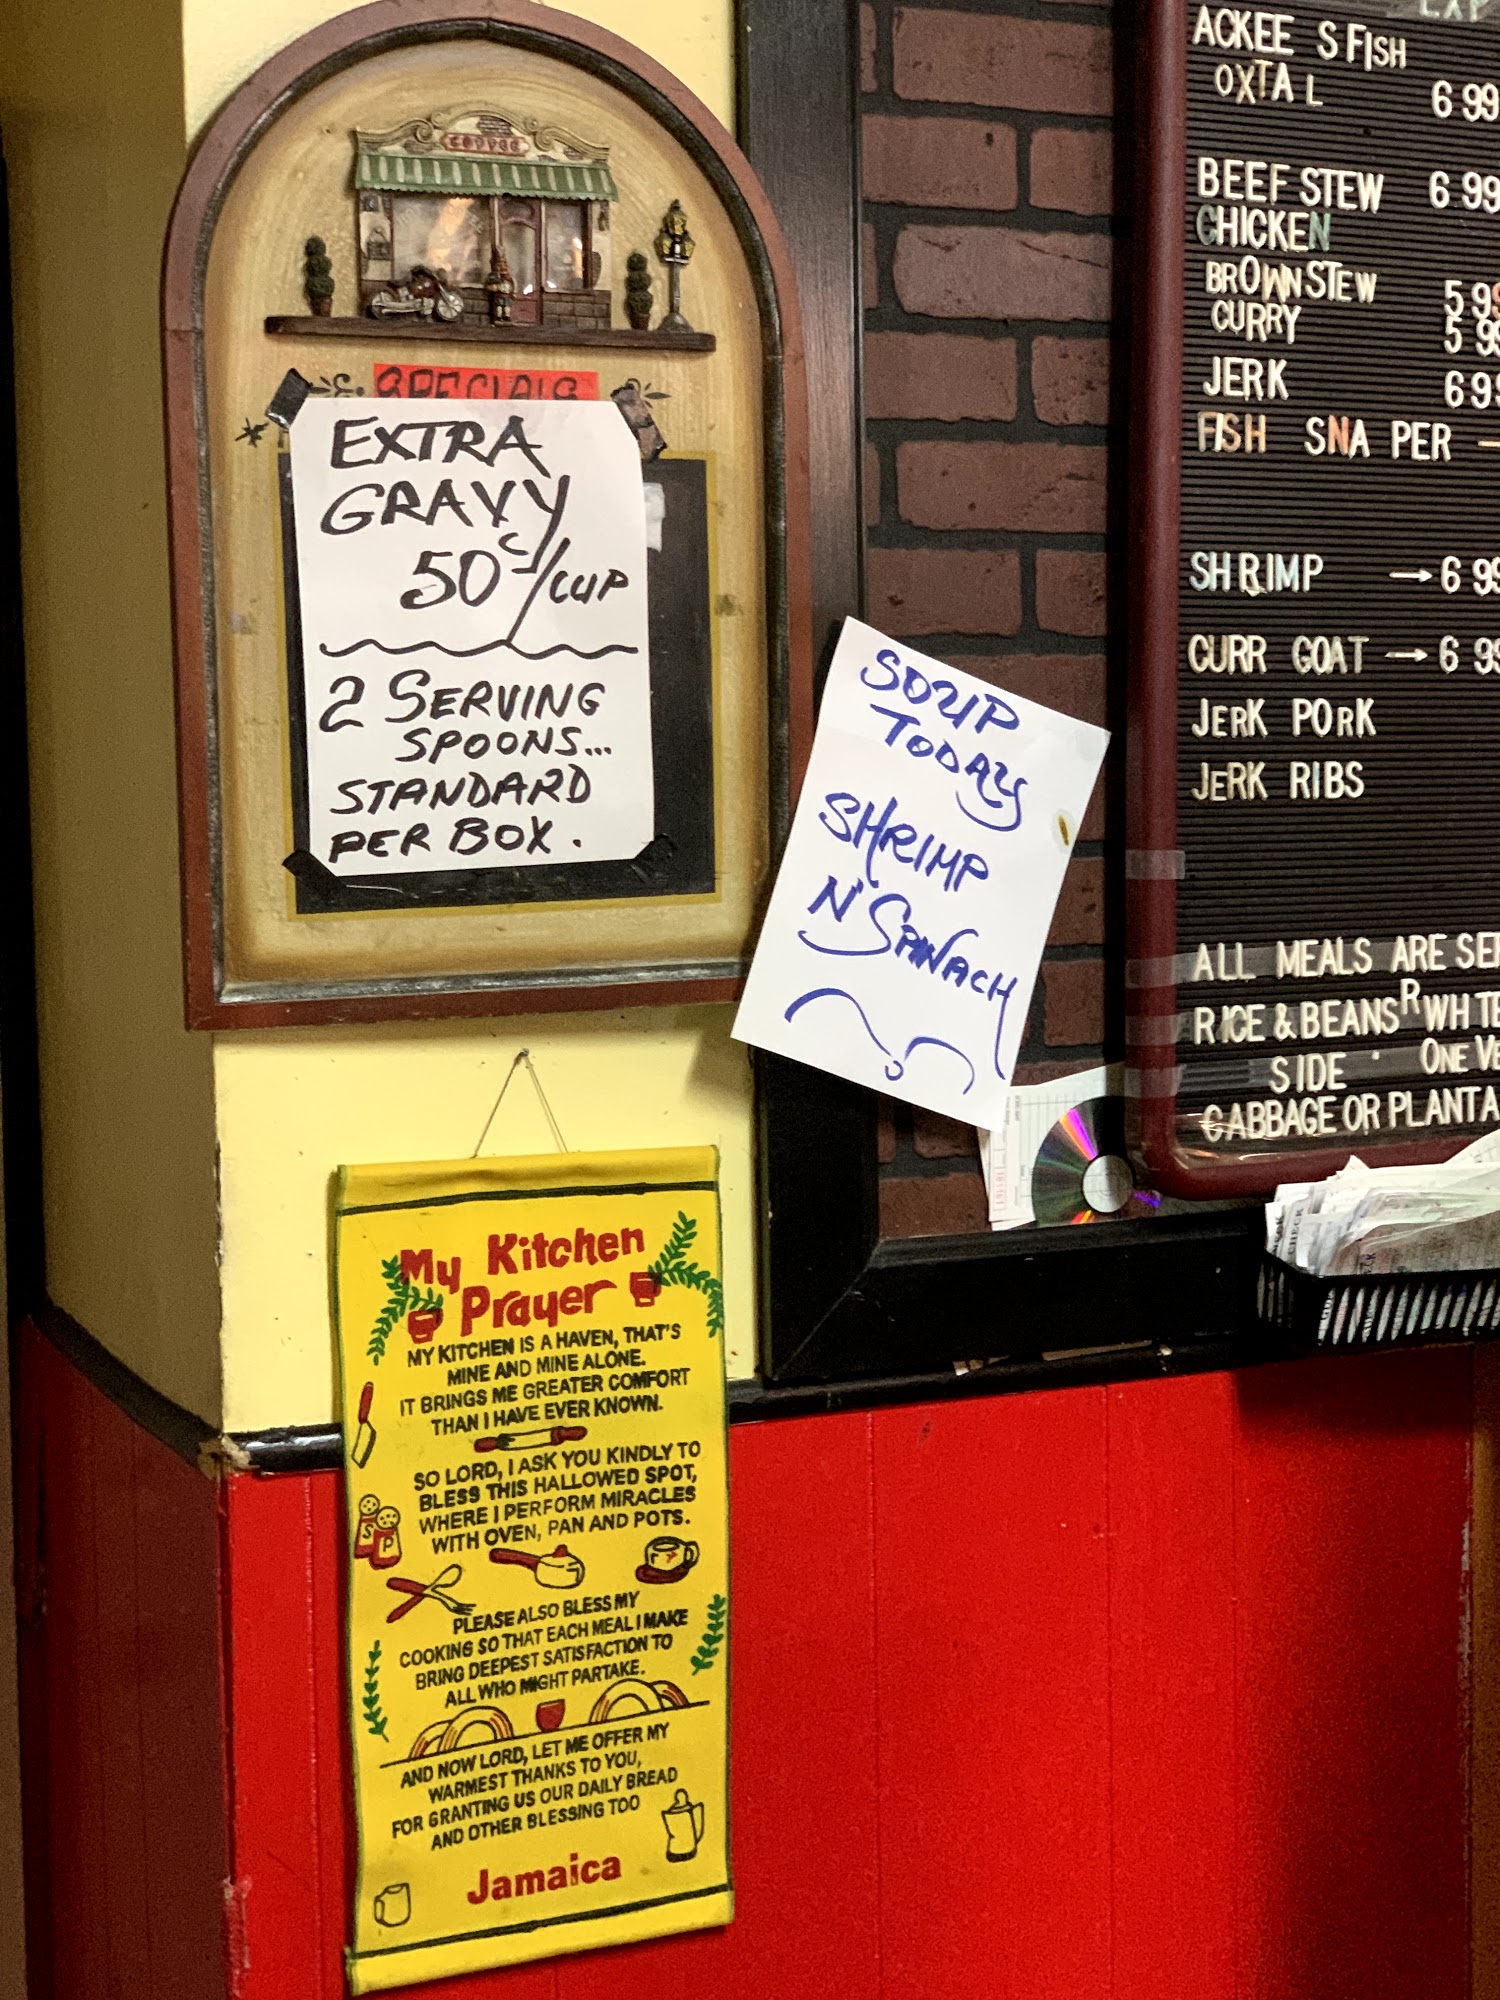 COFFEE
SPECIALS
EXTRA
GRAVY
50¢/CUP
2 SERVING
SPOONS...
STANDARD
PER BOX.
SOUP
TODAY
SHRIMP
N' SPINACH
ACKEE S FISH
OXTA L 6 99
BEEF STEW 6 99
CHICKEN
BROWN STEW 5 99
CURRY 5 99
JERK 6 99
FISH SNA PER —
SH RIMP → 6 99
CURR GOAT → 6 99
JERK PORK
JERK RIBS
ALL MEALS ARE SE
RICE & BEANS R WH TE
SIDE · ONE VE
CABBAGE OR PLANTA
My Kitchen
Prayer
MY KITCHEN IS A HAVEN, THAT'S
MINE AND MINE ALONE.
IT BRINGS ME GREATER COMFORT
THAN I HAVE EVER KNOWN.
SO LORD, I ASK YOU KINDLY TO
BLESS THIS HALLOWED SPOT,
WHERE I PERFORM MIRACLES
WITH OVEN, PAN AND POTS.
S
P
PLEASE ALSO BLESS MY
COOKING SO THAT EACH MEAL I MAKE
BRING DEEPEST SATISFACTION TO
ALL WHO MIGHT PARTAKE.
AND NOW LORD, LET ME OFFER MY
WARMEST THANKS TO YOU,
FOR GRANTING US OUR DAILY BREAD
AND OTHER BLESSING TOO
Jamaica